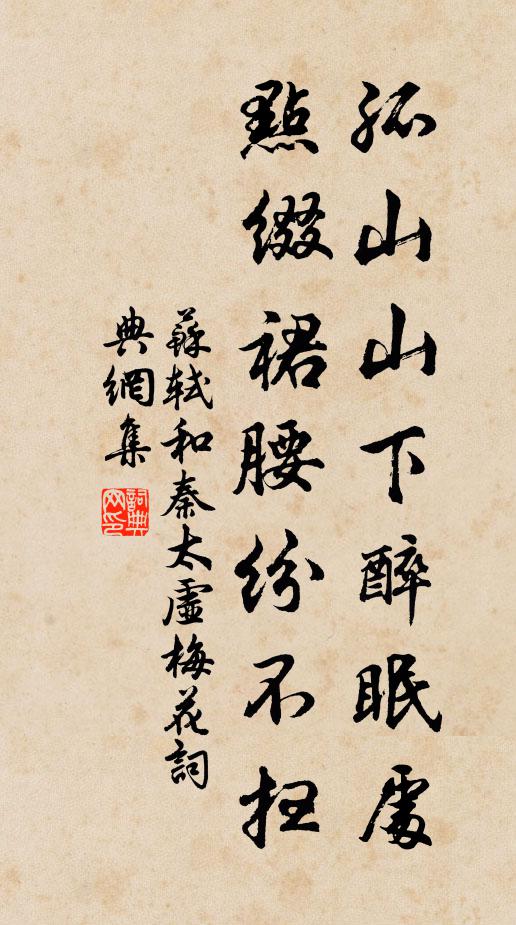 孤山山下醉眠處
點綴裙腰紛不掃
蘇軾和秦太虛梅花詞
典網集
詞典網印